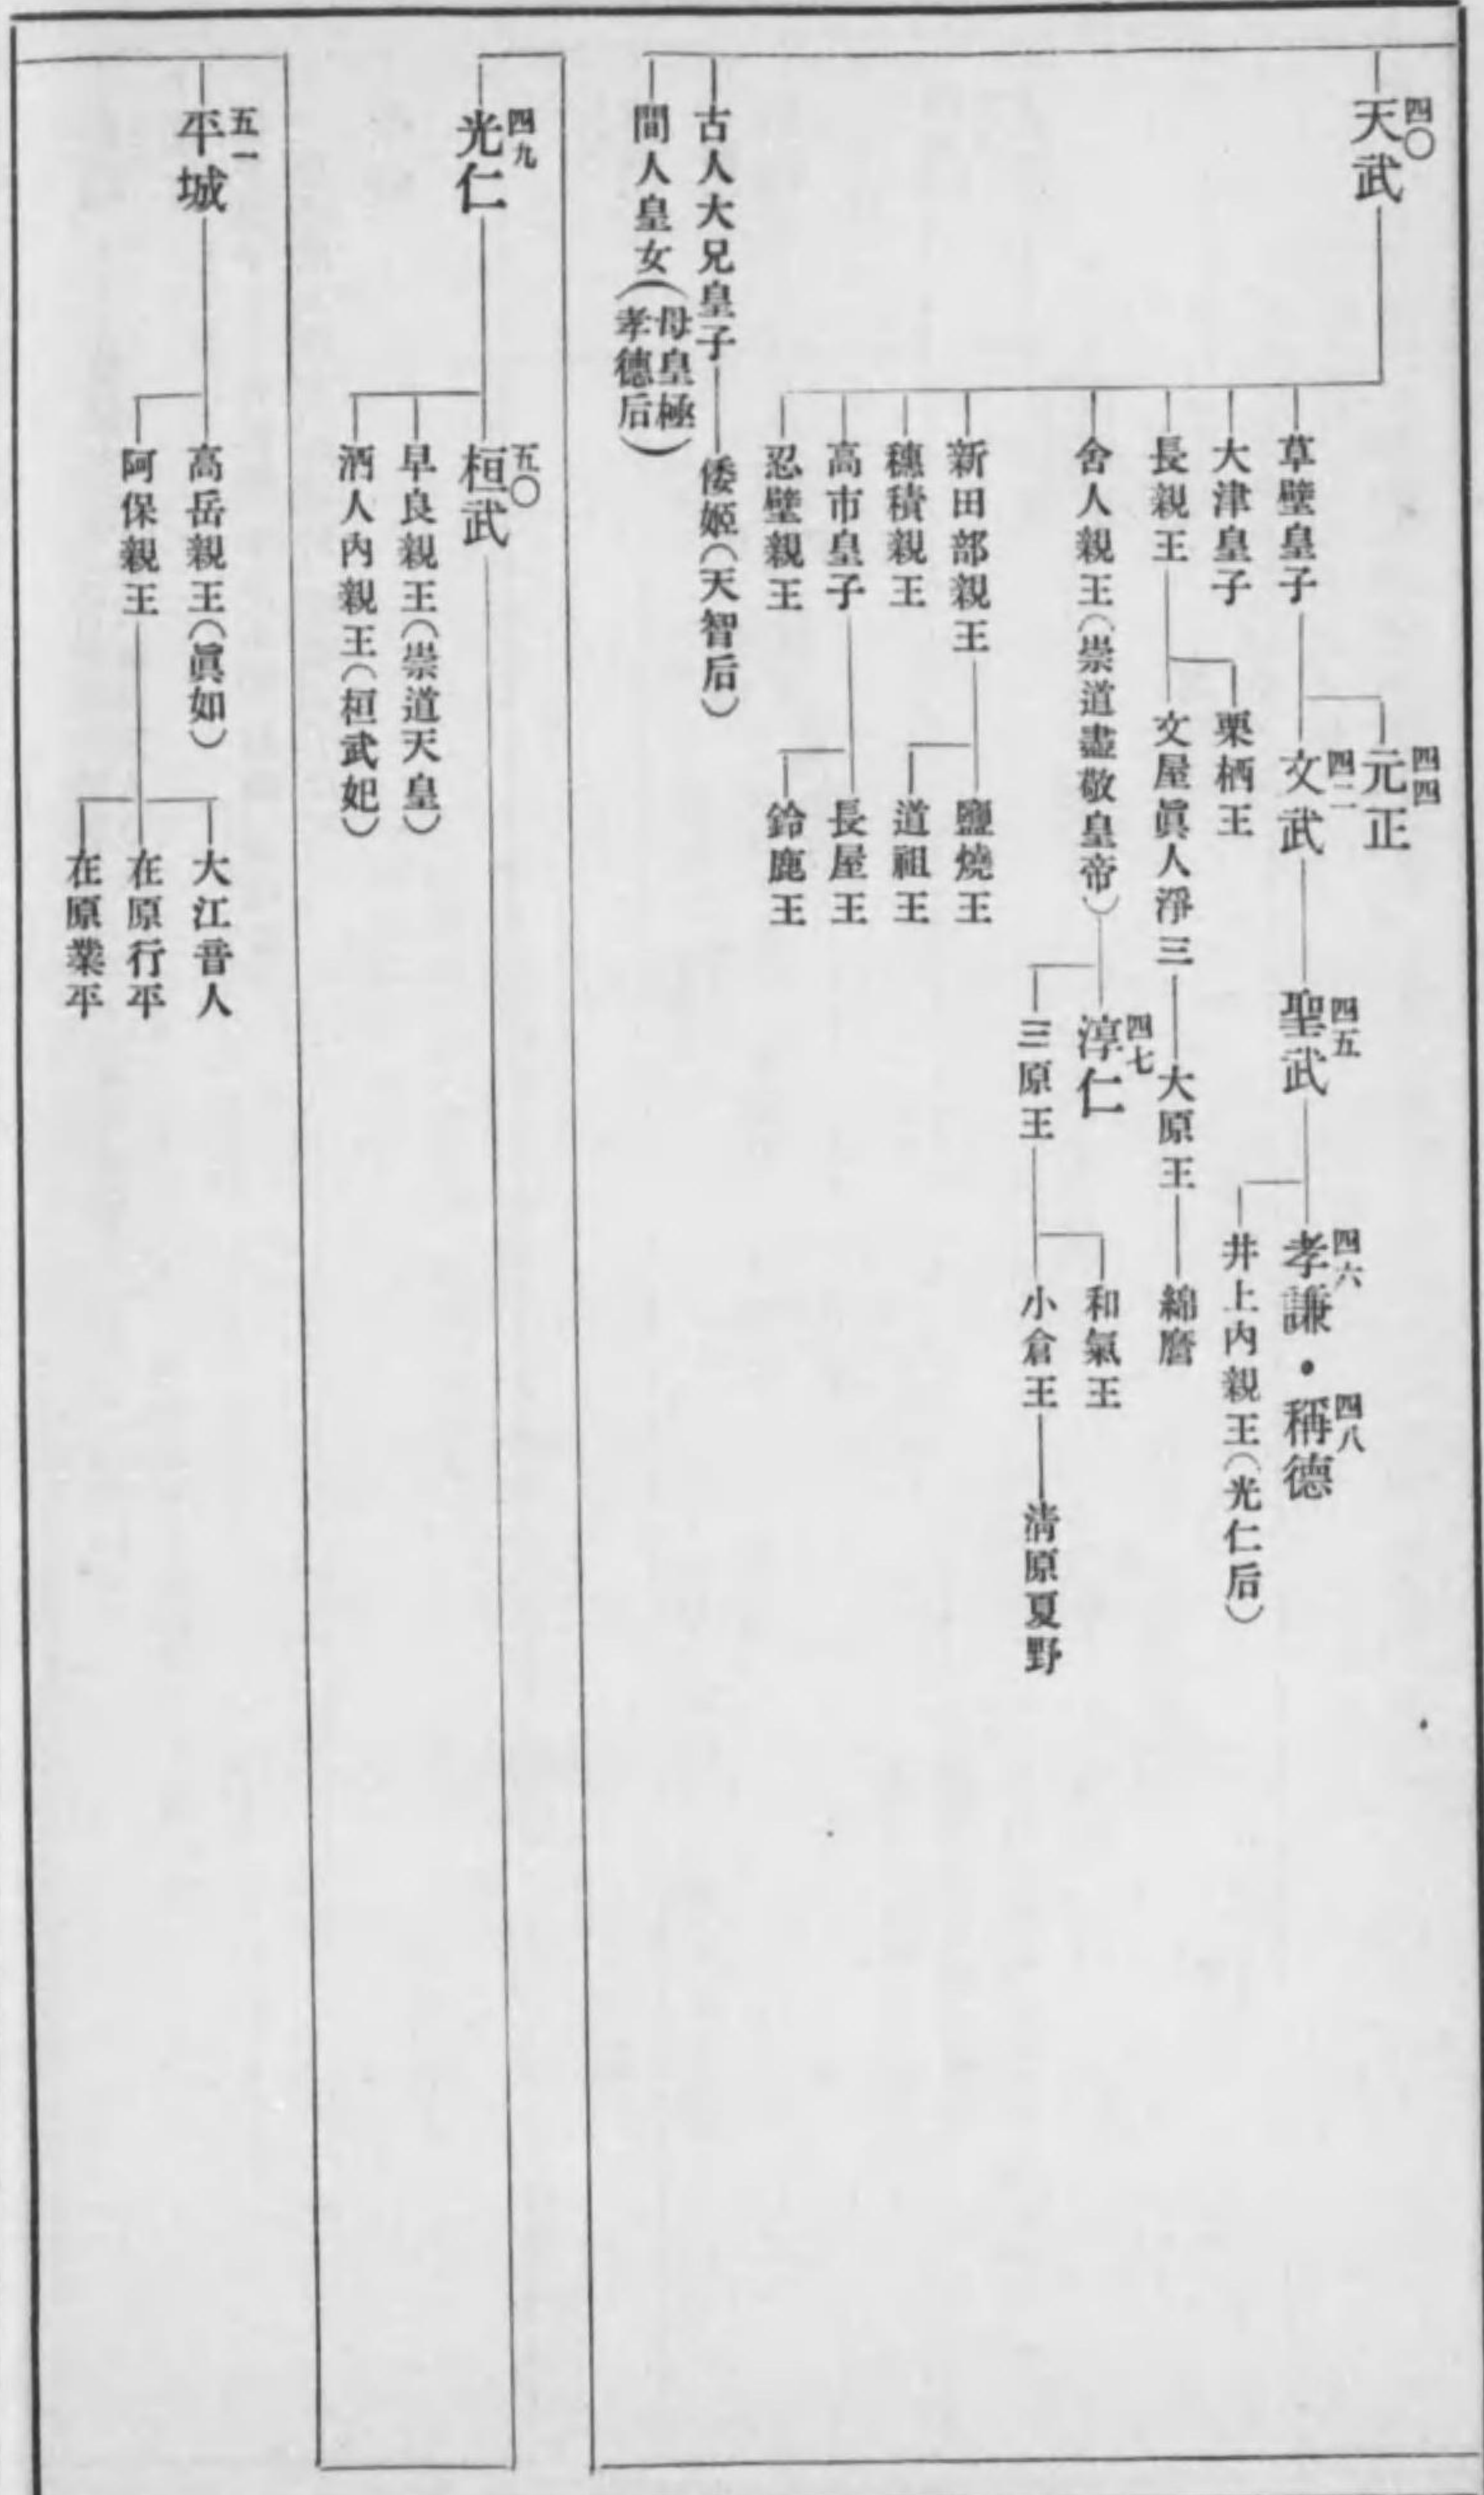 四〇
天武
草壁皇子
四四
元正
四二
文武
四五
聖武
四六
孝謙・
四八
稱德
井上内親王(光仁后)
大津皇子
長親王
栗栖王
文屋眞人淨三
大原王
綿麿
舍人親王(崇道盡敬皇帝)
四七
淳仁
三原王
和氣王
小倉王
淸原夏野
新田部親王
鹽燒王
道祖王
穗積親王
高市皇子
長屋王
鈴鹿王
忍壁親王
古人大兄皇子
倭姬(天智后)
間人皇女(母皇極
孝德后)
四九
光仁
五〇
桓武
早良親王(崇道天皇)
酒人内親王(桓武妃)
五一
平城
高岳親王(眞如)
阿保親王
大江音人
在原行平
在原業平